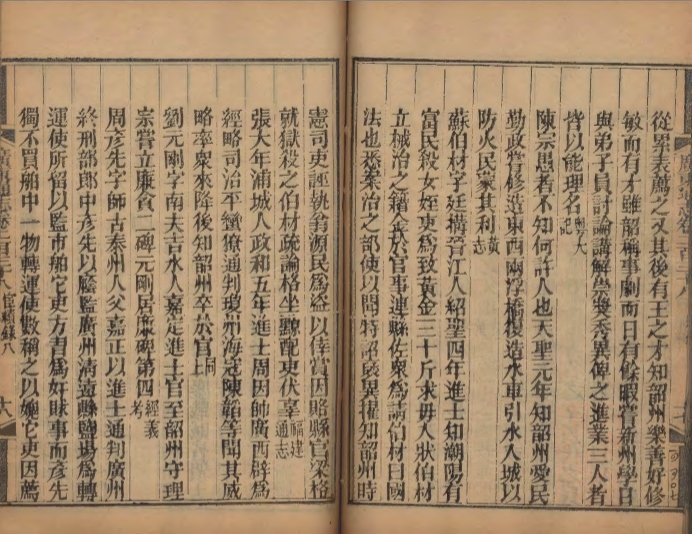 從累表薦之又其後有王之才知韶州樂善好修
敏而有才雖韶稱事劇而日有餘暇嘗新州學日
與弟子員討論講解崇獎秀異俾之進業三人者
皆以能理名
陳宗愚者不知何許人也天聖元年知韶州愛民
勤政嘗修造東西兩浮橋復造水車引水入城以
防火民蒙其利黃志
蘇伯材字廷構晉江人紹聖四年進士知潮陽有
富民殺女姪吏為致黃金三十斤求毋入狀伯材
立械治之籍金於官事連縣佐衆為請伯材曰國
法也悉案治之部使以聞特詔褒異擢知韶州時
憲司吏誣執翁源民為盜以倖賞因賂縣官梁格
就獄殺之伯材疏論格坐黥配吏伏辜福建通志
張大年浦城人政和五年進士周因帥廣西辟為
經略司治平蠻獠通判瓊州海寇陳韜等聞其威
略率衆來降後知韶州卒於官同上
劉元剛字南夫吉水人嘉定進士官至韶州守理
宗嘗立廉貪二碑元剛居廉碑第四經義考
周彥先字師古泰州人父嘉正以進士通判廣州
終刑部郎中彥先以廕監廣州清遠縣鹽場為轉
運使所留以監市舶它吏方書為奸賕事而彥先
獨不買舶中一物轉運使數稱之以媿它吏因薦
宦績錄八